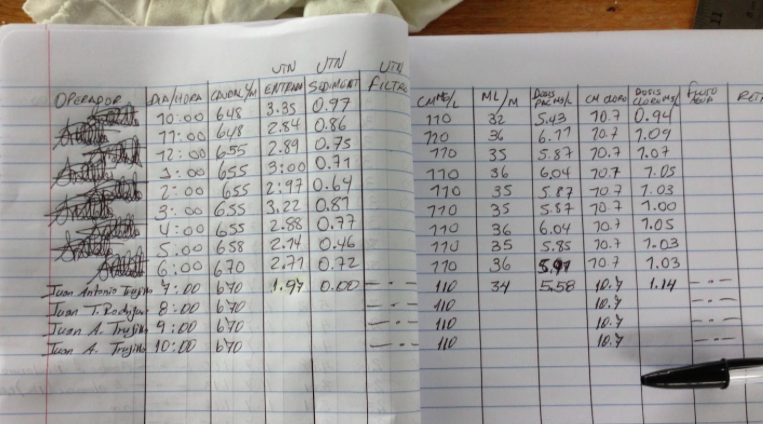 UTN UTN UTN
OPERADOR DIA/HORA CAUDAL/M ENTRAN SEDIMENT FILTRO CM ML/M DOSIS CM CLORO DOSIS FLUJO
10:00 648 3.35 0.97 110 32 5.43 10.7 0.94
11:00 648 2.84 0.86 120 36 6.11 10.7 1.09
12:00 655 2.89 0.75 110 35 5.87 10.7 1.07
1:00 655 3:00 0.71 110 36 6.04 10.7 1.05
2:00 655 2.97 0.64 110 35 5.87 10.7 1.03
3:00 655 3.22 0.81 110 35 5.87 10.7 1.00
4:00 655 2.88 0.77 110 36 6.04 10.7 1.05
5:00 658 2.74 0.46 110 35 5.85 10.7 1.03
6:00 670 2.71 0.72 110 36 10.7 1.03
Juan Antonio Trujillo 7:00 670 1.97 0.00 — · — 110 34 5.58 10.7 1.14 — · —
Juan T. Rodriguez 8:00 670 — · — 110 10.7 — · —
Juan A. Trujillo 9:00 670 — · — 110 10.7 — · —
Juan A. Trujillo 10:00 670 — · — 110 10.7 — · —
11